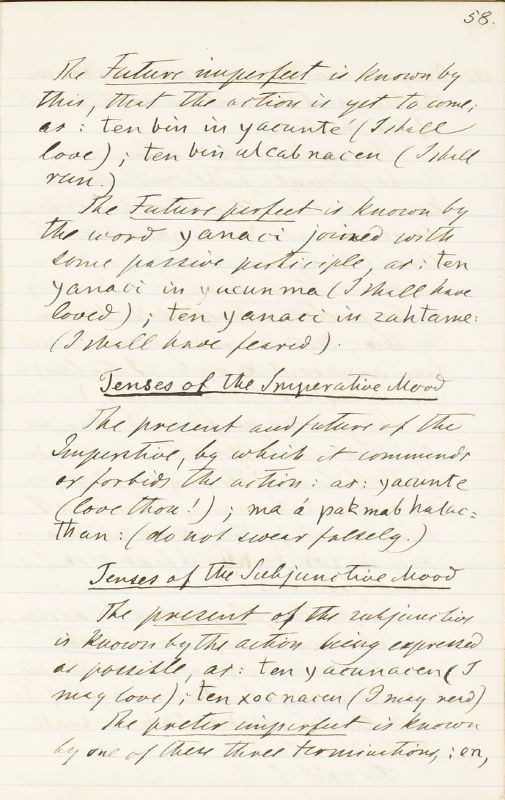 58.
The Future imperfect is known by
this, that the action is yet to come;
as: ten bin in yacunté (I shall
love); ten bin alcabnacen (I shall
run.)
The Future perfect is known by
the word yanaci joined with
some passive participle, as: ten
yanaci in yucunma (I shall have
loved); ten yanaci in zahtame:
(I shall have feared).
Tenses of the Imperative Mood
The present and future of the
Imperative, by which it commands
or forbids the action: as: yacunte
(love thou!); ma á pakmab haluc=
than: (do not swear falsely.)
Tenses of the Subjunctive Mood
The present of the subjunctive
is known by the action being expressed
as possible, as: ten yacunacen (I
may love); ten xocnacen (I may read)
The preter imperfect is known
by one of these three terminations, : en,